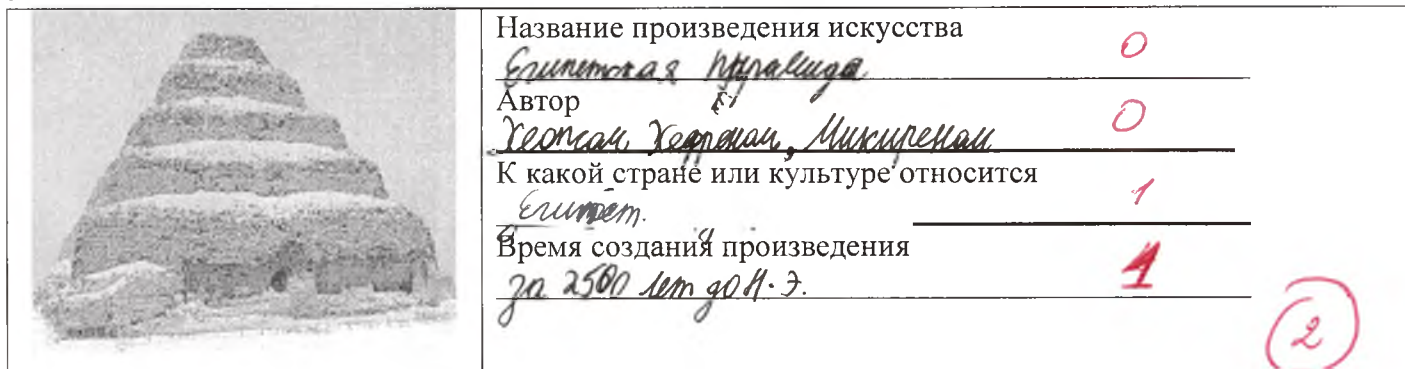 Название произведения искусства
0
Египетская пирамида
Автор
0
Хеопсом, Хефреном, Микиреном
К какой стране или культуре относится
1
Египет.
Время создания произведения
1
за 2500 лет до н. э.
2